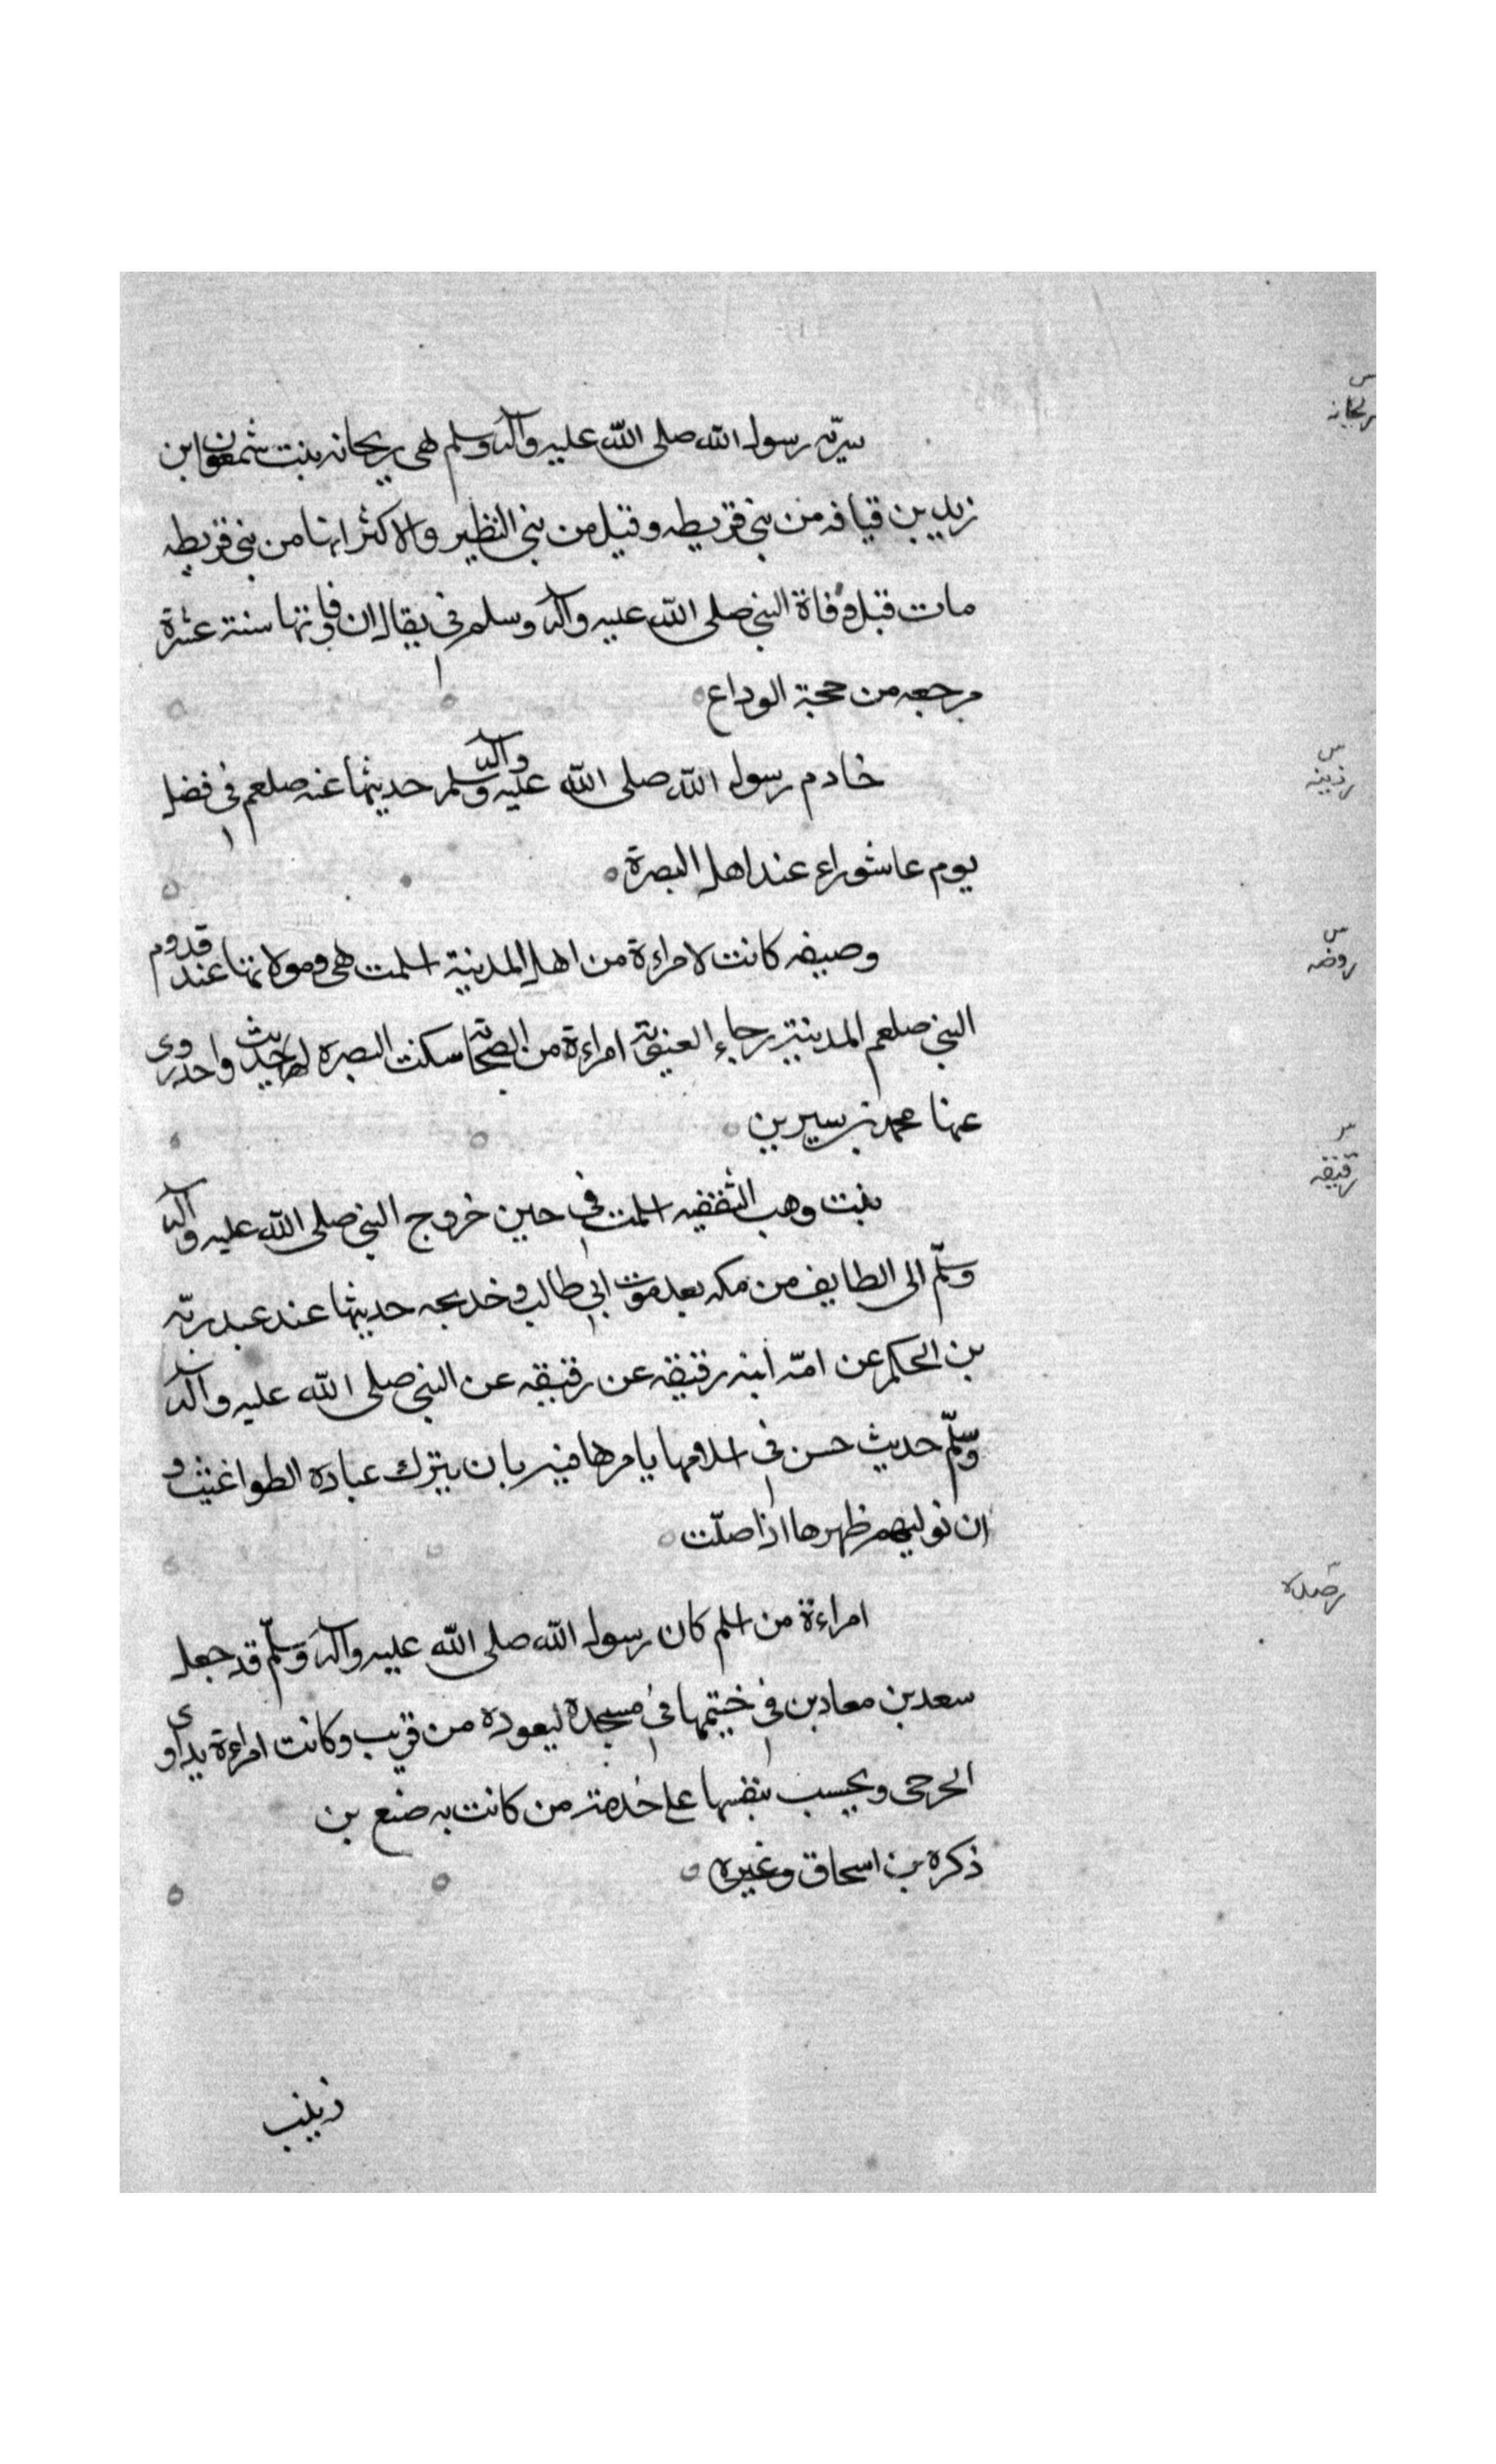 ريحانه
سريّه رسول الله صلى الله عليه وآله وسلم هى ريحانه بنت شمعون ابن
زيد بن قيافه من بنى قريطه وقيل من بنى النظير والاكثر انها من بنى قريطه
مات قبل وفاة النبى صلى الله عليه وآله وسلم فى يقال ان وفاوتها سنة عشرة
مرجعه من حجة الوداع
رزينه
خادم رسول الله صلى الله عليه وآله وسلم حديثها عنه صلعم فى فضل
يوم عاشوراء عند اهل البصرة
روضه
وصيفه كانت لامراءة من اهل المدينة اسلمت هى ومولاتها عند قدوم
النبى صلعم المدينة رجاء العنوية امراءة من الصحابة سكنت البصره لها حديث واحد روى
عنها محمد بن سيرين
رقيقه
بنت وهب الثقفيه اسلمت فى حين خروج النبى صلى الله عليه وآله
وسلّم الى الطايف من مكه بعد موت ابى طالب وخديجه حديثها عند عبد ربّه
بن الحكم عن امّه ابنه رقيقه عن رقيقه عن النبى صلى الله عليه وآله
وسلّم حديث حسن فى اسلامها يامرها فيه بان يترك عباده الطواغيث و
ان توليهم ظهرها اذا صلّت
امراءة من اسلم كان رسول الله صلى الله عليه وآله وسلّم قد جعل
سعد بن معاد بن فى خيتمها فى مسجده ليعوده من قريب وكانت امراءة يداوى
الجرحى ويحسب بنفسها على خدمة من كانت به ضيع بن
ذكره بن اسحاق وغيره
زينب